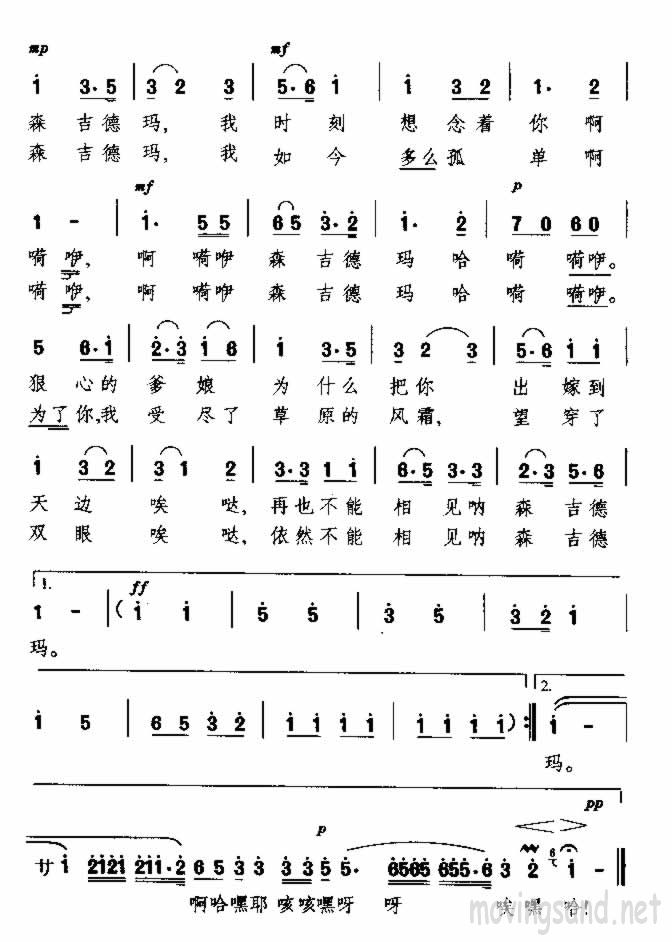 mp mf
i 3·5 | 3 2 3 | 5·6 i | i 32 | 1· 2
森吉德玛,我 时 刻 想念着你啊
森吉德玛,我 如 今 多么孤 单啊
mf p
1 - | i· 55 | 65 3·2 | i· 2 | 70 60
嗬咿, 啊 嗬咿 森吉德 玛 哈 嗬 嗬咿。
嗬咿, 啊 嗬咿 森吉德 玛 哈 嗬 嗬咿。
5 6·i | 2·3 i6 | i 3·5 | 3 2 3 | 5·6 i i
狠 心的 爹 娘 为 什么 把你 出 嫁到
为了你,我 受 尽了 草 原的 风霜, 望 穿了
i 32 | 3 1 2 | 3·3 1 1 | 6·5 3·3 | 2·3 5·6
天 边 唉 哒, 再也不能 相 见呐 森 吉德
双 眼 唉 哒, 依然不能 相 见呐 森 吉德
1. ff
1 - (i i | 5 5 | 3 5 | 32 1
玛。
i 5 | 65 32 | i i i i | i i i i) :‖ i -
2.
玛。
pp
p
サ i 2i2i 2ii·2 6 5 3 3 3 35 5· 6565 655·6 3 2 i - ‖
啊哈嘿耶 咳咳嘿呀 呀 唉 嘿 哈!
movingsand.net